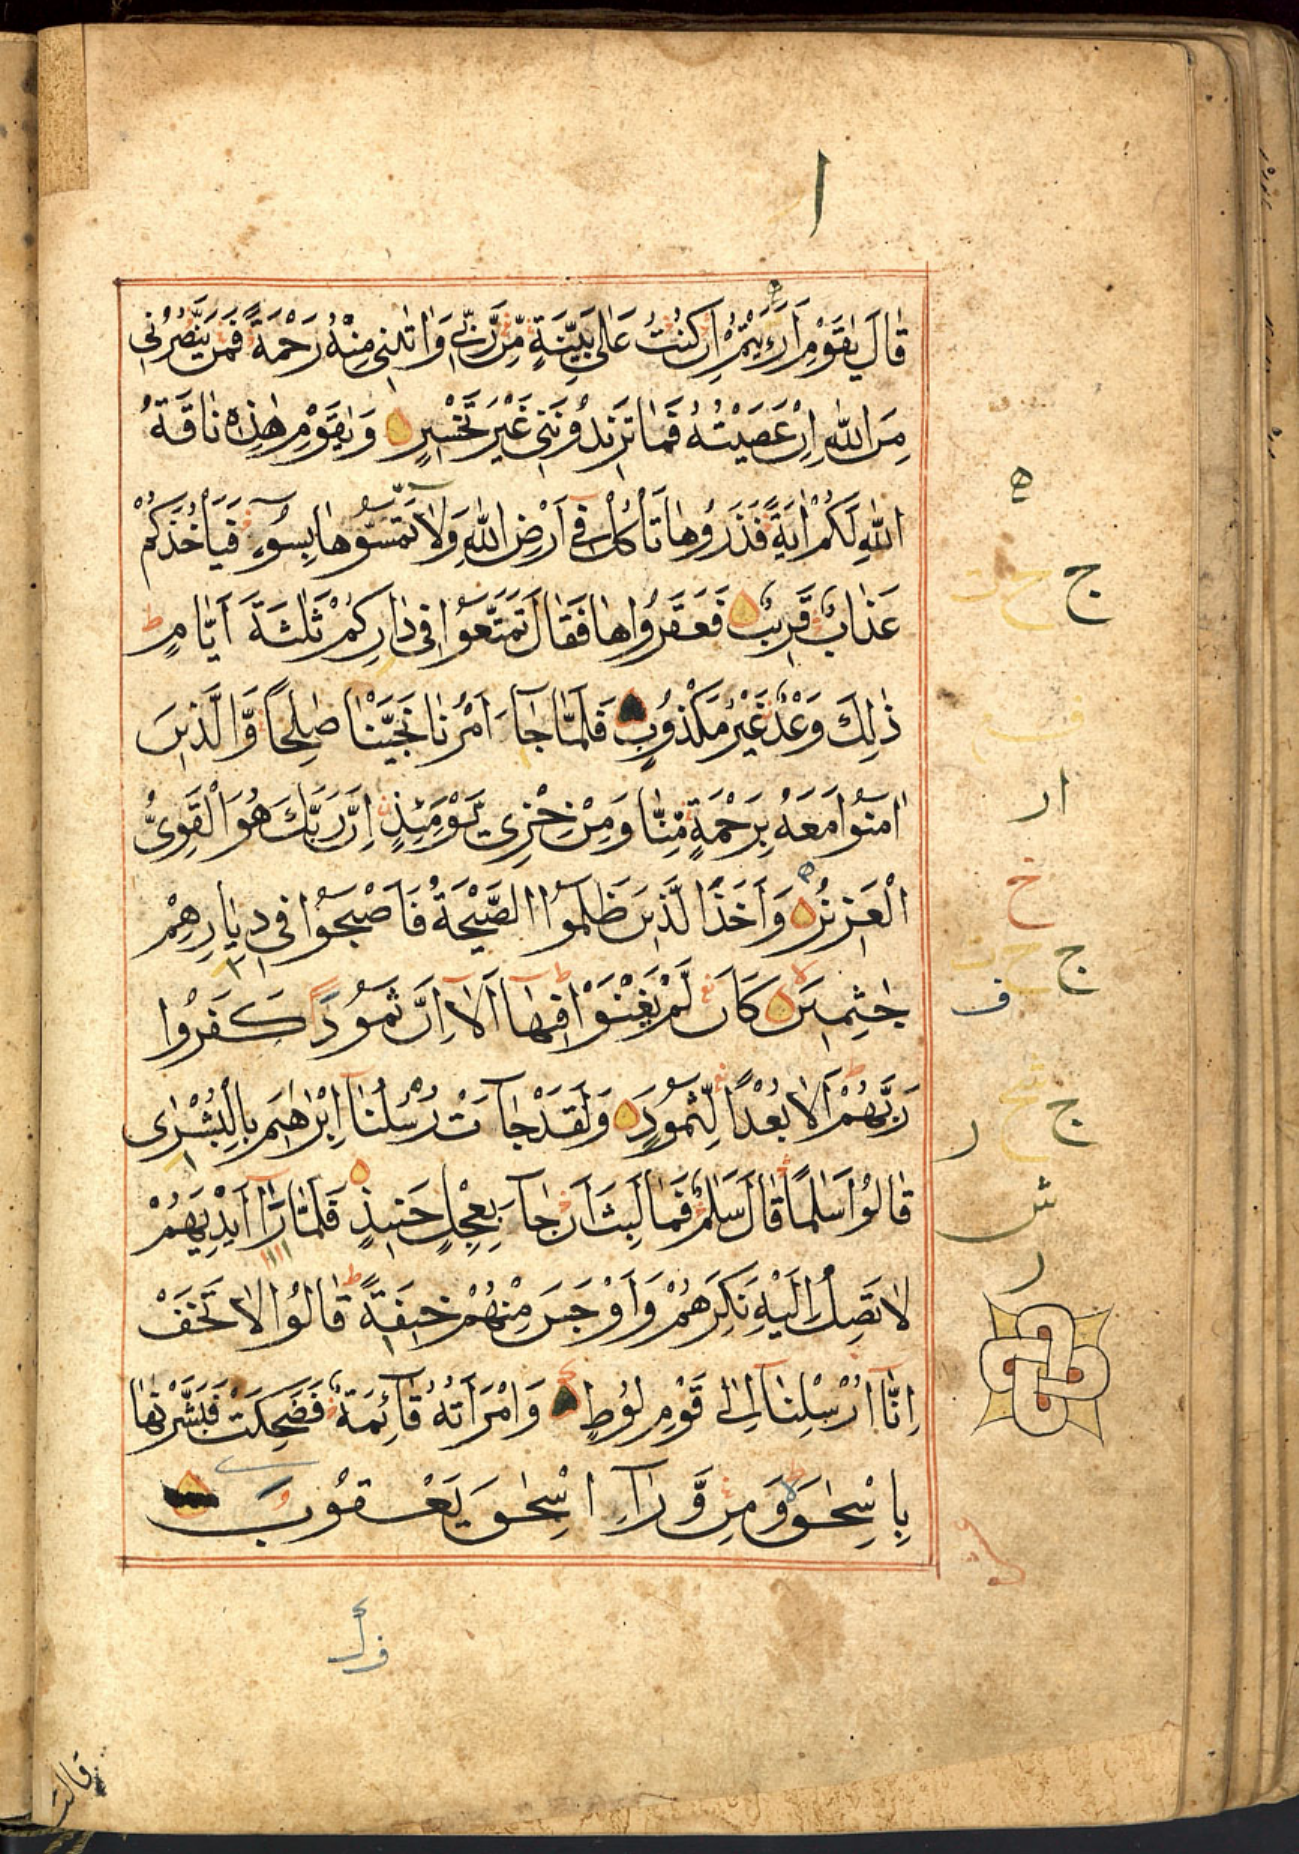 ا
قَالَ يٰقَوْمِ اَرَءَيْتُمْ اِنْ كُنْتُ عَلٰى بَيِّنَةٍ مِّنْ رَّبِّيْ وَاٰتٰىنِيْ مِنْهُ رَحْمَةً فَمَنْ يَّنْصُرُنِيْ
مِنَ اللّٰهِ اِنْ عَصَيْتُهُ فَمَا تَزِيْدُوْنَنِيْ غَيْرَ تَخْسِيْرٍ وَيٰقَوْمِ هٰذِهٖ نَاقَةُ
اللّٰهِ لَكُمْ اٰيَةً فَذَرُوْهَا تَأْكُلْ فِيْ اَرْضِ اللّٰهِ وَلَا تَمَسُّوْهَا بِسُوْٓءٍ فَيَأْخُذَكُمْ
عَذَابٌ قَرِيْبٌ فَعَقَرُوْهَا فَقَالَ تَمَتَّعُوْا فِيْ دَارِكُمْ ثَلٰثَةَ اَيَّامٍ ط
ذٰلِكَ وَعْدٌ غَيْرُ مَكْذُوْبٍ فَلَمَّا جَآءَ اَمْرُنَا نَجَّيْنَا صٰلِحًا وَّالَّذِيْنَ
اٰمَنُوْا مَعَهُ بِرَحْمَةٍ مِّنَّا وَمِنْ خِزْيِ يَوْمِئِذٍ اِنَّ رَبَّكَ هُوَ الْقَوِيُّ
الْعَزِيْزُ وَاَخَذَ الَّذِيْنَ ظَلَمُوا الصَّيْحَةُ فَاَصْبَحُوْا فِيْ دِيَارِهِمْ
جٰثِمِيْنَ كَاَنْ لَّمْ يَغْنَوْا فِيْهَا اَلَآ اِنَّ ثَمُوْدَ كَفَرُوْا
رَبَّهُمْ اَلَا بُعْدًا لِّثَمُوْدَ وَلَقَدْ جَآءَتْ رُسُلُنَا اِبْرٰهِيْمَ بِالْبُشْرٰى
قَالُوْا سَلٰمًا قَالَ سَلٰمٌ فَمَا لَبِثَ اَنْ جَآءَ بِعِجْلٍ حَنِيْذٍ فَلَمَّا رَاٰ اَيْدِيَهُمْ
لَا تَصِلُ اِلَيْهِ نَكِرَهُمْ وَاَوْجَسَ مِنْهُمْ خِيْفَةً ط قَالُوْا لَا تَخَفْ
اِنَّآ اُرْسِلْنَآ اِلٰى قَوْمِ لُوْطٍ وَامْرَاَتُهُ قَآئِمَةٌ فَضَحِكَتْ فَبَشَّرْنٰهَا
بِاِسْحٰقَ وَمِنْ وَّرَآءِ اِسْحٰقَ يَعْقُوْبَ
ج
ار
خ
ج
ف
ج
ر
ش
ر
قالت